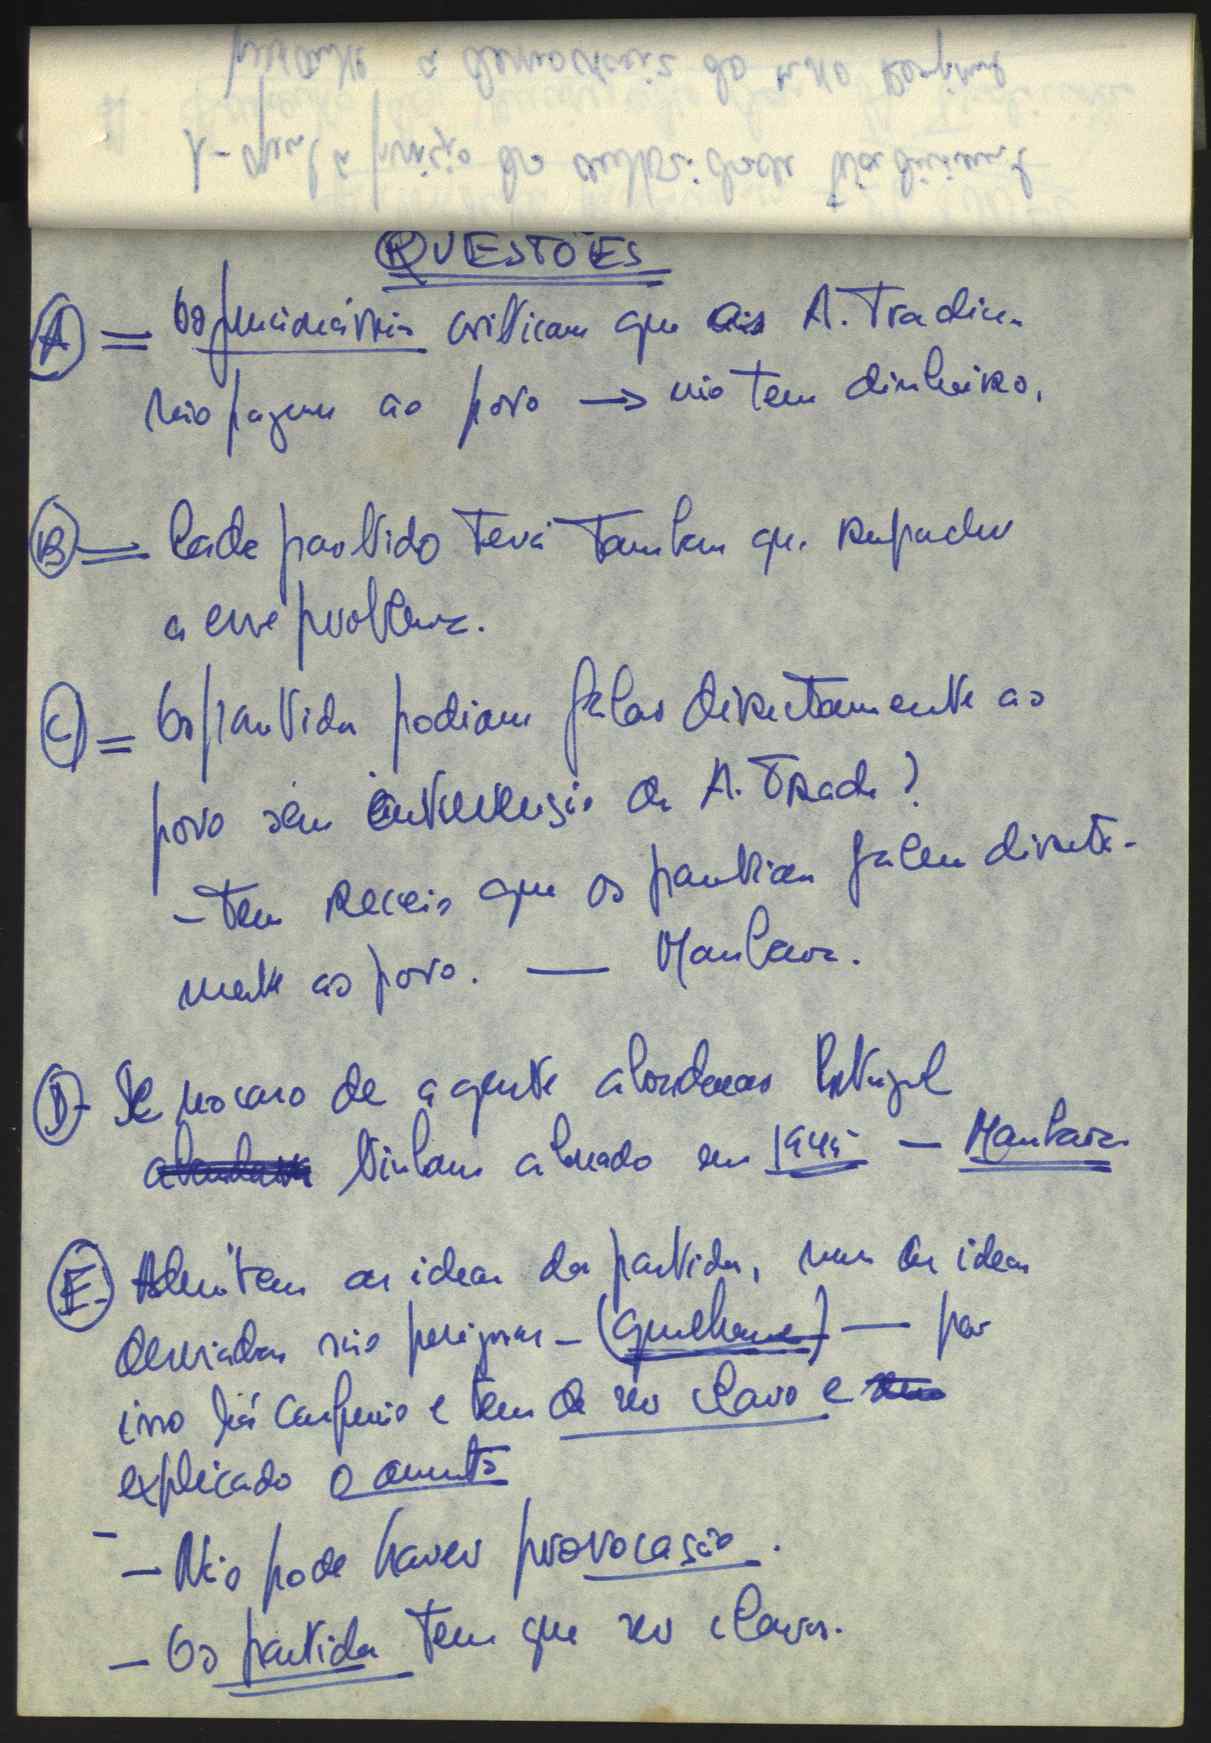 QUESTÕES
A = Os funcionários criticam que as A. Tradic.
não pagam ao povo → não tem dinheiro.
B = Cada partido terá tambem que responder
a esse problema.
C = Os partidos podiam falar directamente ao
povo sem intervenção da A. Trad. ?
- Tem receio que os partidos falem directa-
mente ao povo. —
D - Se no caso de a gente
tinham em 1945 —
E - Admitem as ideas dos partidos, mas as ideas
desviadas são perigosas - ( ) — por
isso há confusão e tem de ser claro e
explicado o assunto
- Não pode haver provocação.
- Os partidos tem que ser claros.